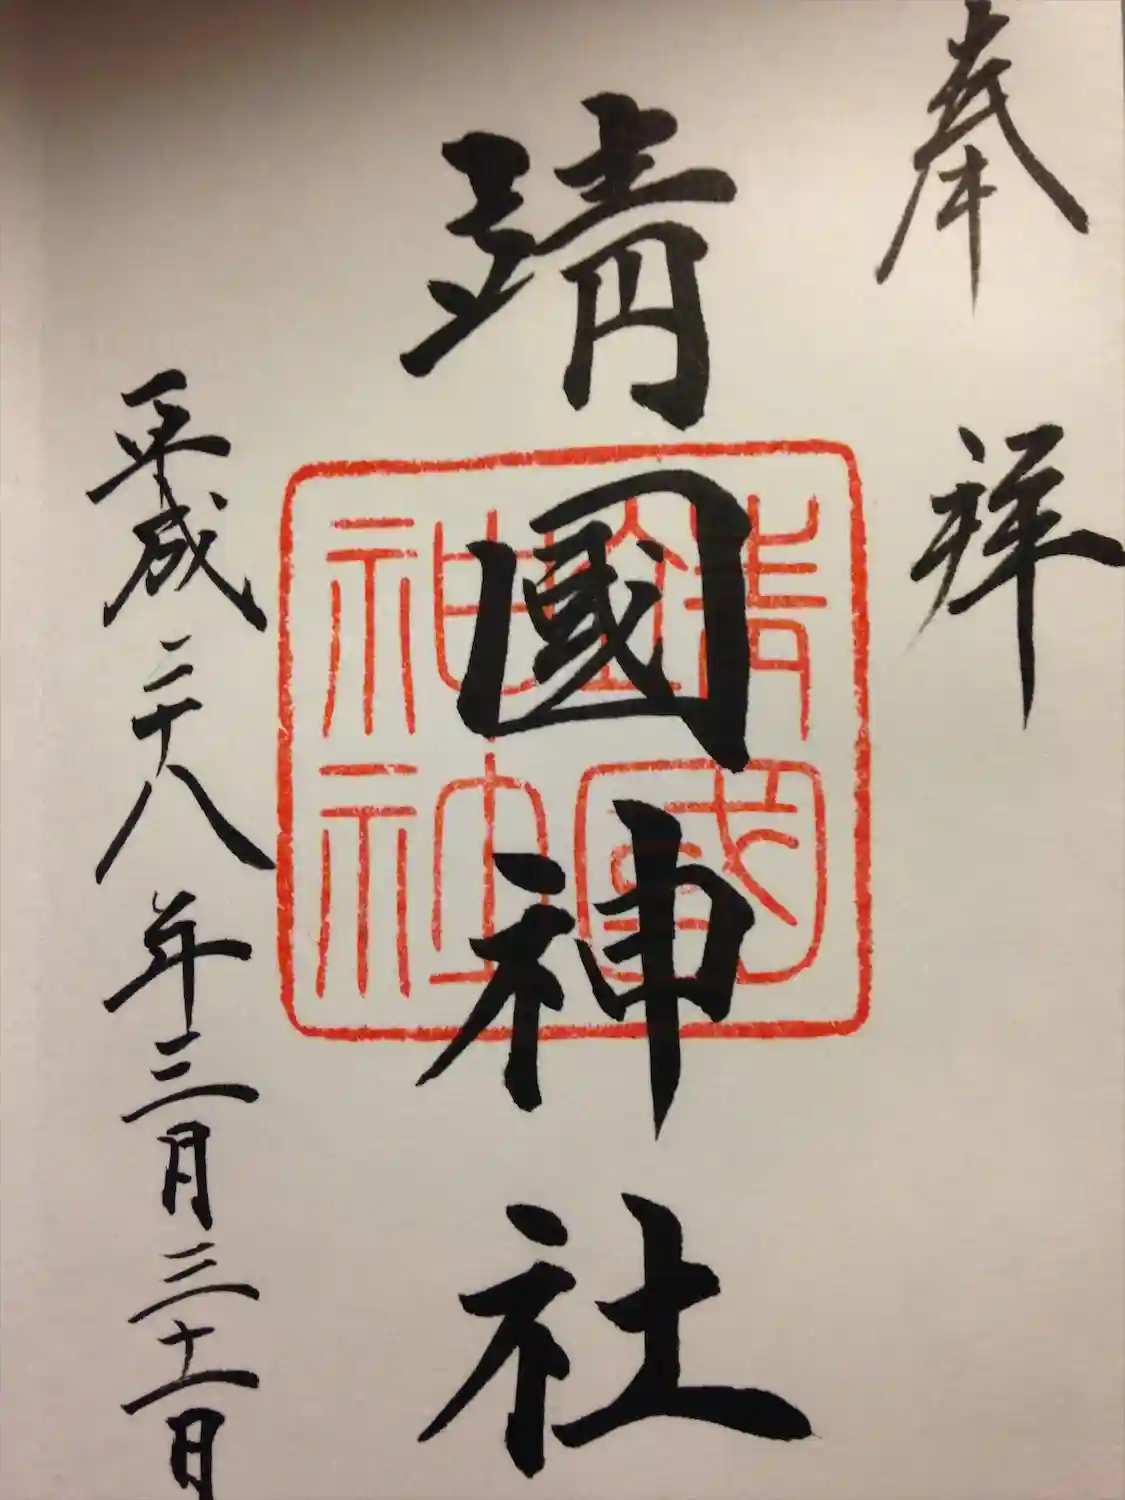 奉拝
靖國神社
靖國神社
平成二十八年三月三十一日